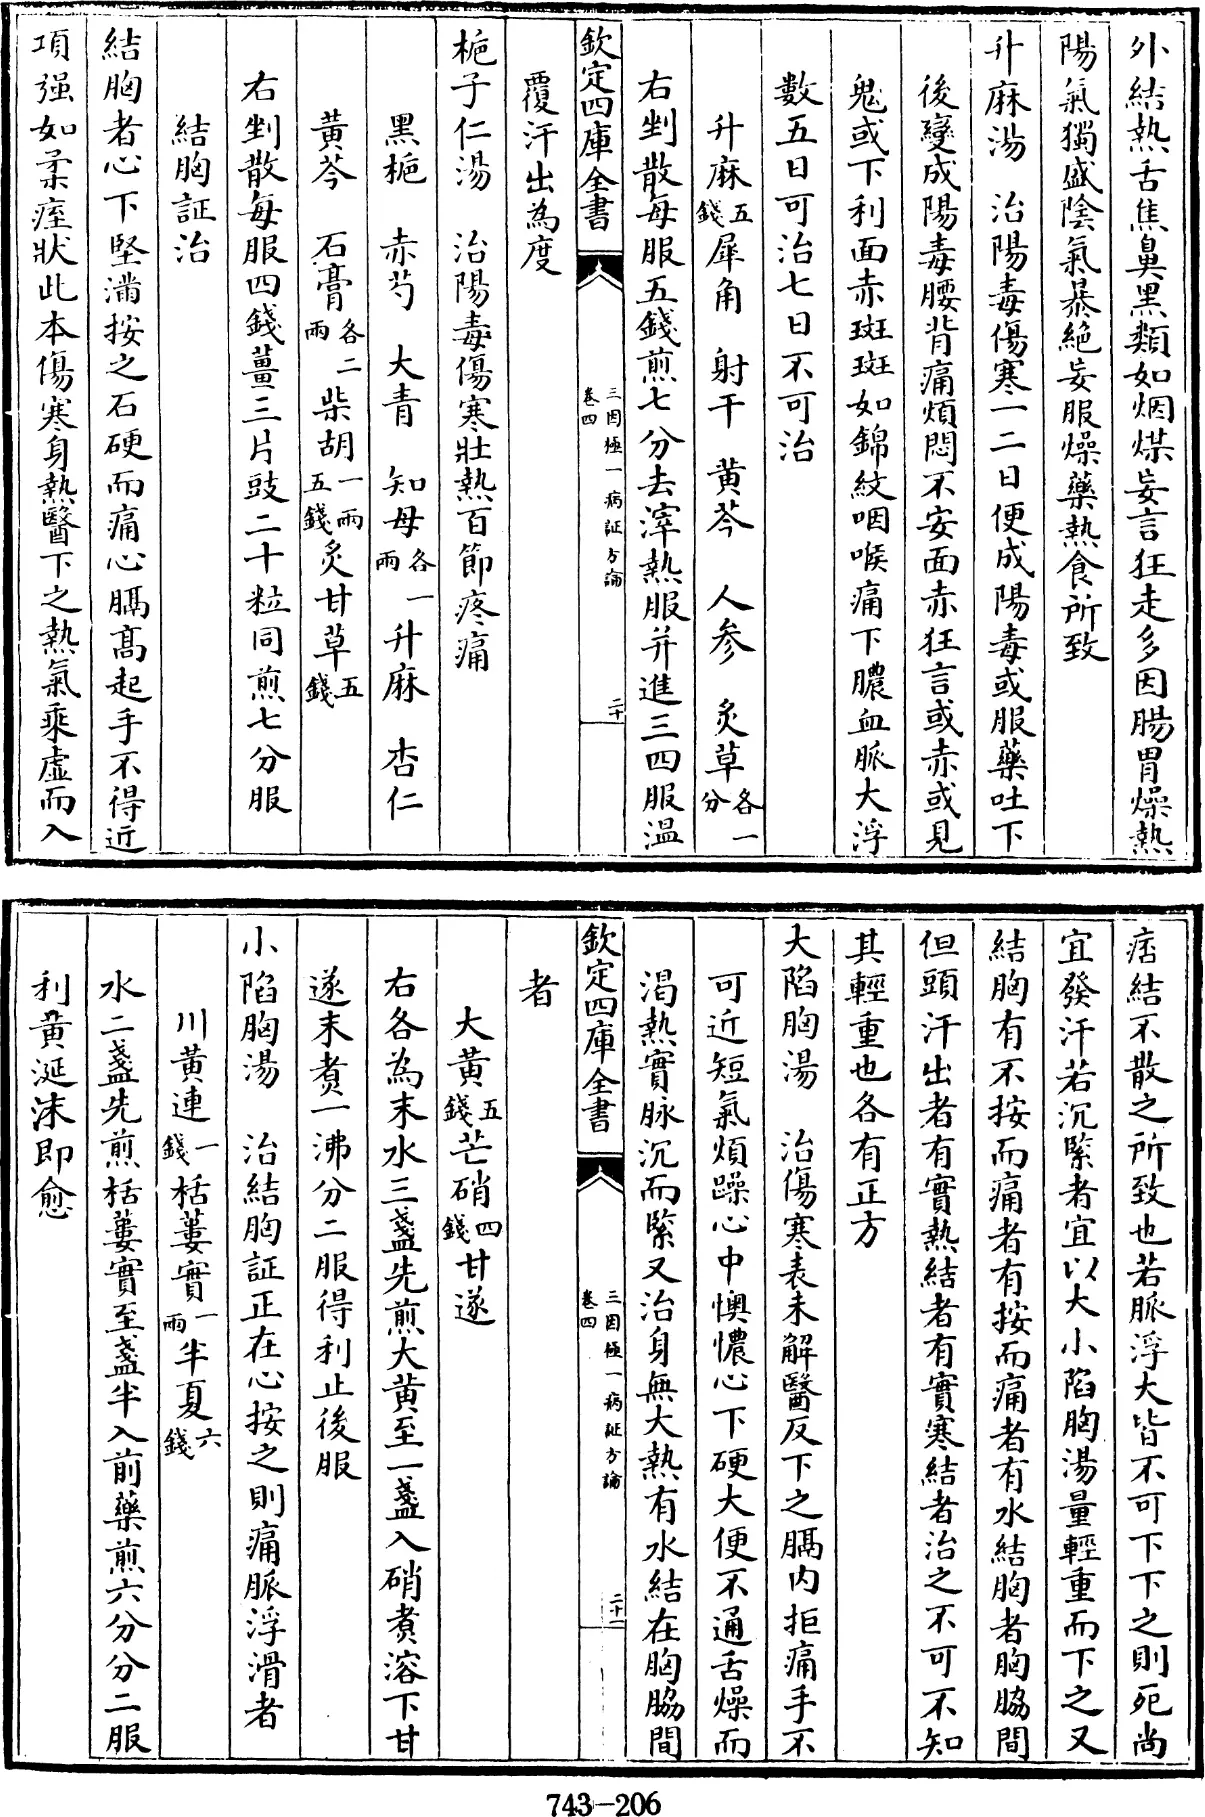 外結熱舌焦鼻黑類如烟煤妄言狂走多因腸胃燥熱
陽氣獨盛陰氣暴絶妄服燥藥熱食所致
升麻湯　治陽毒傷寒一二日便成陽毒或服藥吐下
後變成陽毒腰背痛煩悶不安面赤狂言或赤或見
鬼或下利面赤斑斑如錦紋咽喉痛下膿血脈大浮
數五日可治七日不可治
升麻五錢犀角　射干　黄芩　人參　炙草各一分
右剉散每服五錢煎七分去滓熱服并進三四服温
欽定四庫全書
三因極一病証方論
卷四
二十
覆汗出為度
梔子仁湯　治陽毒傷寒壯熱百節疼痛
黑梔　赤芍　大青　知母各一兩升麻　杏仁
黄芩　石膏各二兩柴胡一兩五錢炙甘草五錢
右剉散每服四錢薑三片豉二十粒同煎七分服
結胸証治
結胸者心下堅滿按之石硬而痛心膈高起手不得近
項强如柔痓狀此本傷寒身熱醫下之熱氣乘虛而入
痞結不散之所致也若脈浮大皆不可下下之則死尚
宜發汗若沉緊者宜以大小陷胸湯量輕重而下之又
結胸有不按而痛者有按而痛者有水結胸者胸脇間
但頭汗出者有實熱結者有實寒結者治之不可不知
其輕重也各有正方
大陷胸湯　治傷寒表未解醫反下之膈内拒痛手不
可近短氣煩躁心中懊憹心下硬大便不通舌燥而
渴熱實脉沉而緊又治身無大熱有水結在胸脇間
欽定四庫全書
三因極一病証方論
卷四
二十一
者
大黄五錢芒硝四錢甘遂
右各為末水三盞先煎大黄至一盞入硝煮溶下甘
遂末煮一沸分二服得利止後服
小陷胸湯　治結胸証正在心按之則痛脈浮滑者
川黄連一錢栝蔞實一兩半夏六錢
水二盞先煎栝蔞實至盞半入前藥煎六分分二服
利黄涎沫即愈
743-206